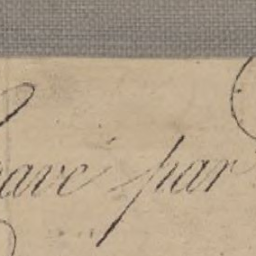 avé par